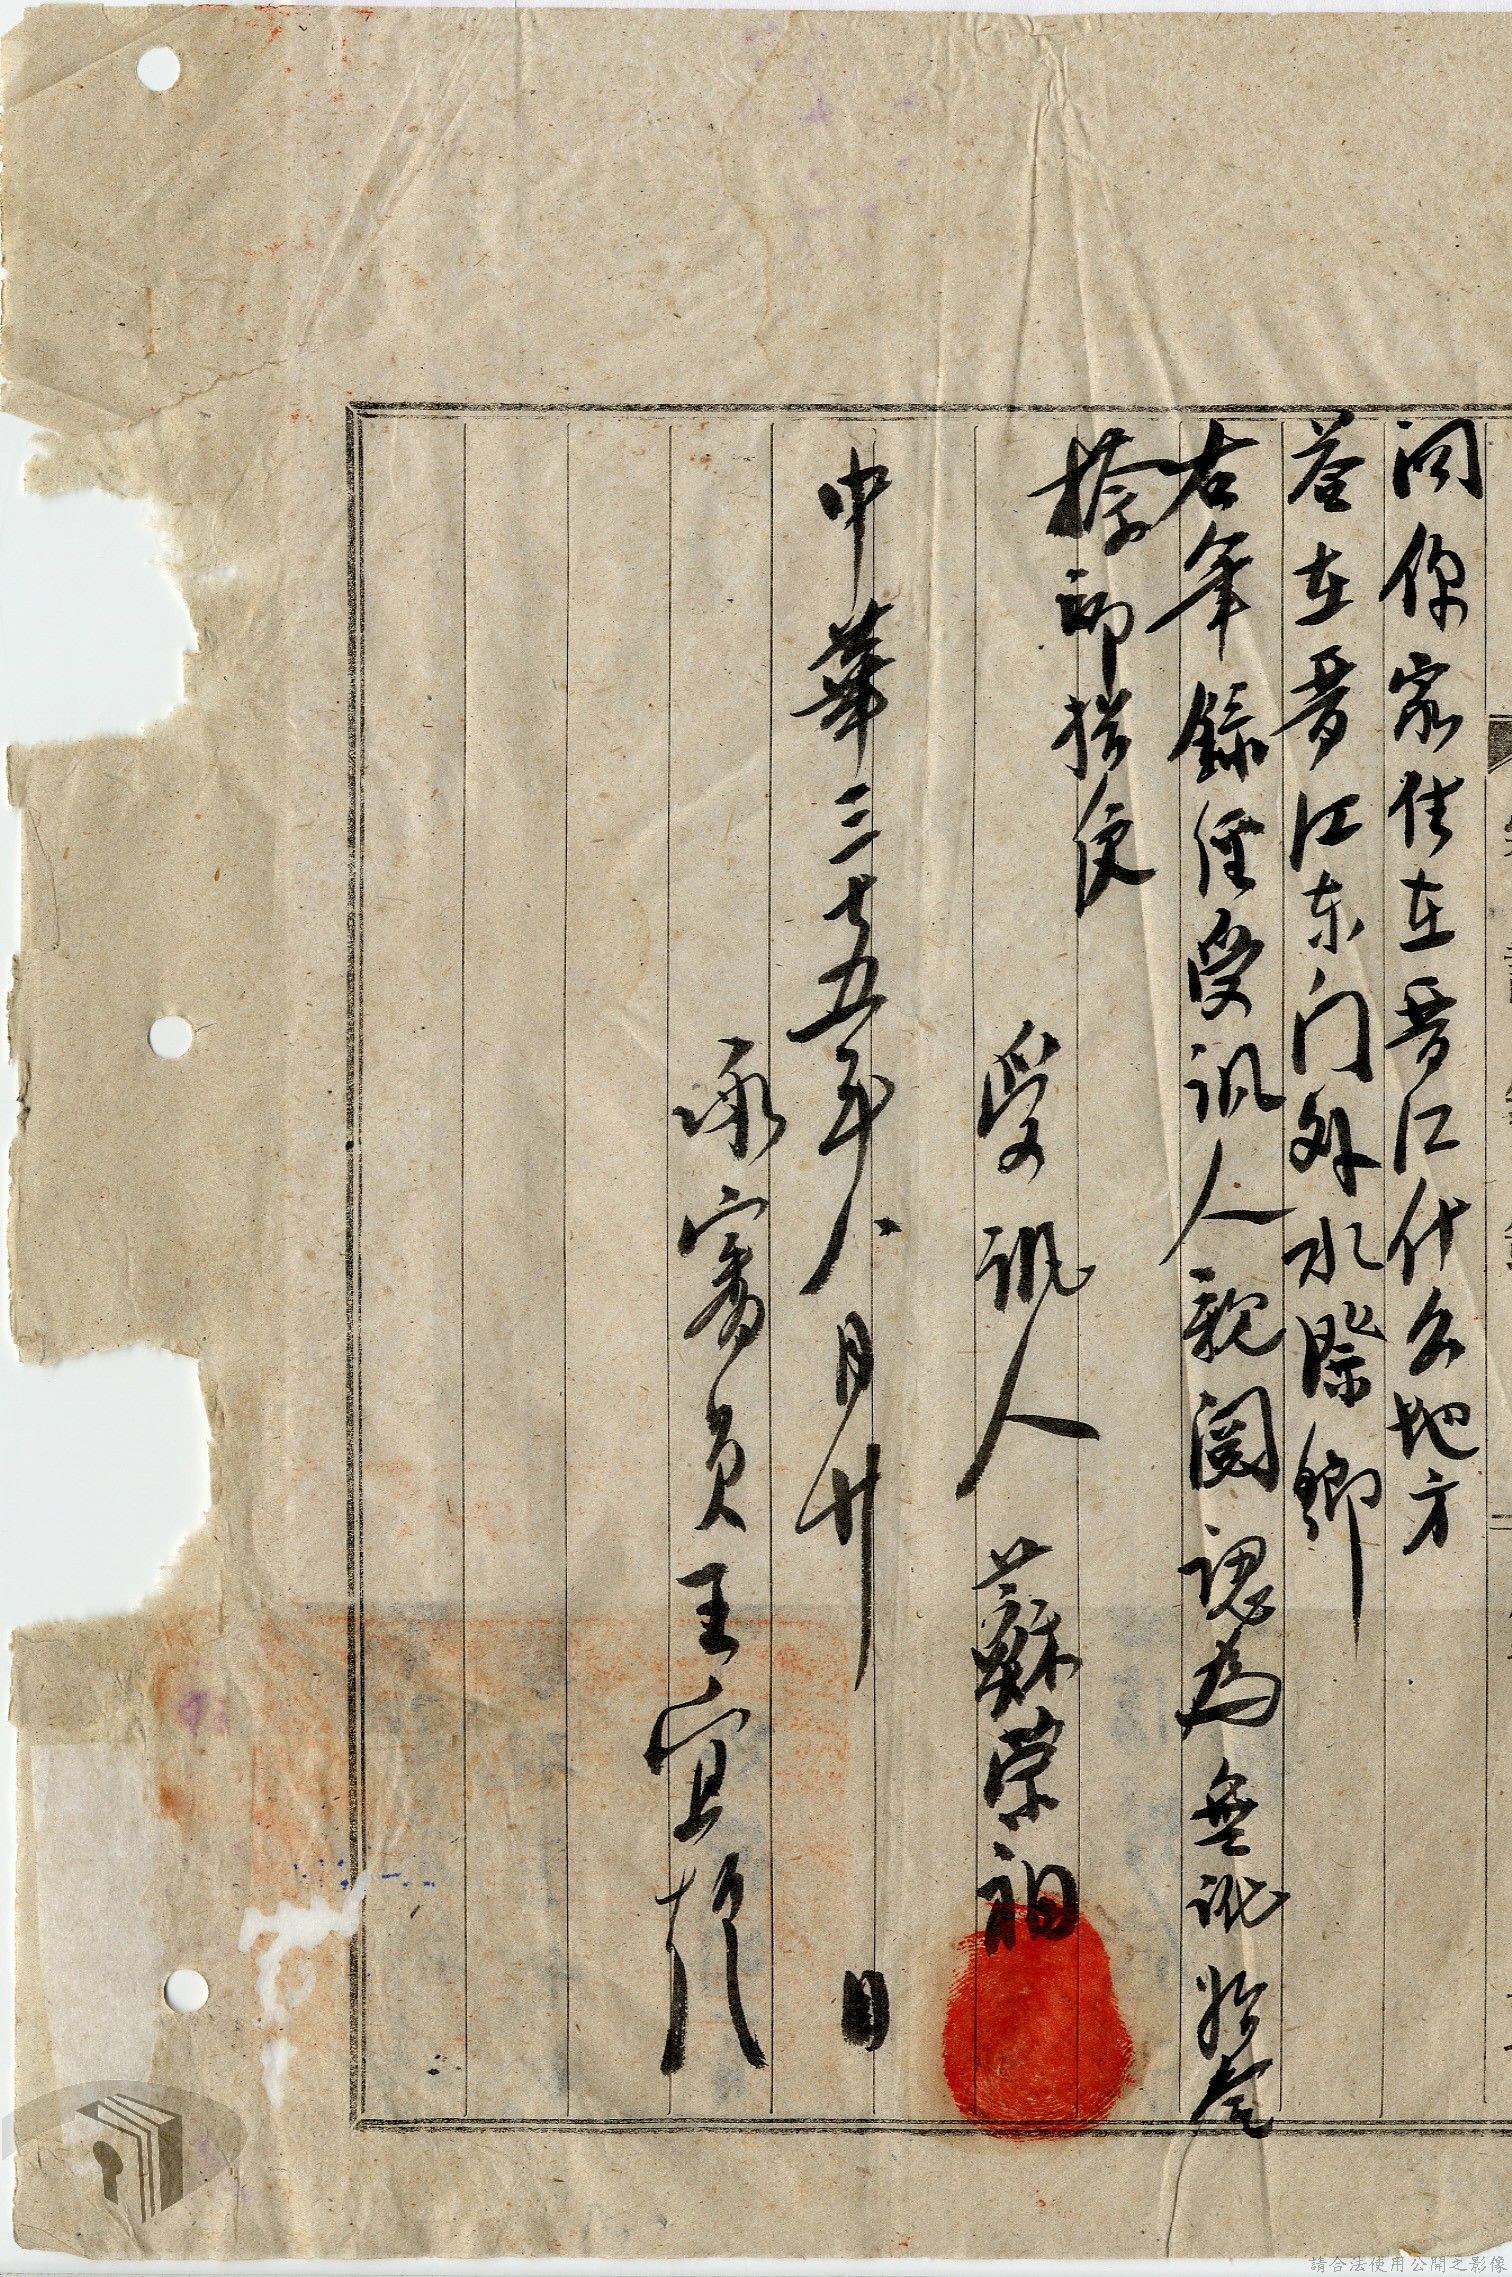 问你家住在晋江什么地方
荅在晋江东门外水際鄉
右筆錄經受訊人親閱認為無訛始令
捺印指模
受訊人 蘇荣
中華三十五年八月廿 日
承審員王宜
請合法使用公開之影像